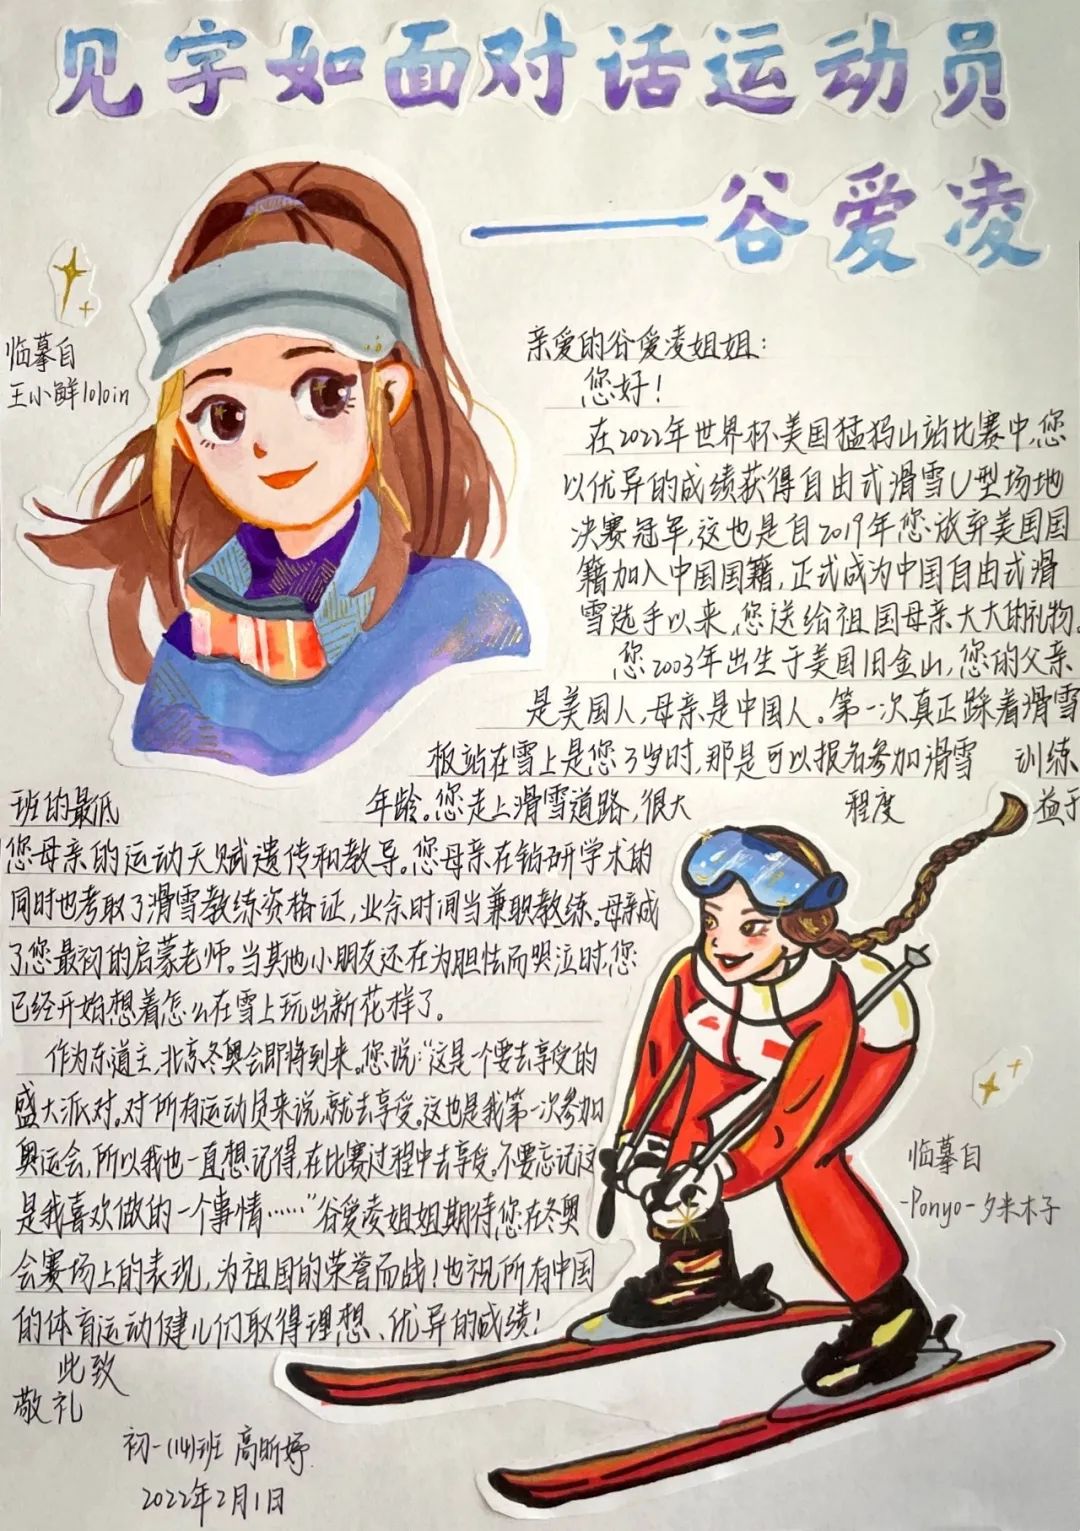 见字如面对话运动员
——谷爱凌
临摹自
王小鲜loloin
亲爱的谷爱凌姐姐:
您好!
在2022年世界杯美国猛犸山站比赛中,您
以优异的成绩获得自由式滑雪U型场地
决赛冠军,这也是自2019年您放弃美国国
籍加入中国国籍,正式成为中国自由式滑
雪选手以来,您送给祖国母亲大大的礼物。
您2003年出生于美国旧金山,您的父亲
是美国人,母亲是中国人。第一次真正踩着滑雪
板站在雪上是您3岁时,那是可以报名参加滑雪 训练
班的最低 年龄。您走上滑雪道路,很大 程度 益于
您母亲的运动天赋遗传和教导。您母亲在钻研学术的
同时也考取了滑雪教练资格证,业余时间当兼职教练。母亲成
了您最初的启蒙老师。当其他小朋友还在为胆怯而哭泣时,您
已经开始想着怎么在雪上玩出新花样了。
作为东道主,北京冬奥会即将到来。您说:“这是一个要去享受的
盛大派对。对所有运动员来说,就去享受。这也是我第一次参加
奥运会,所以我也一直想记得,在比赛过程中去享受。不要忘记这
是我喜欢做的一个事情……”谷爱凌姐姐期待您在冬奥
会赛场上的表现,为祖国的荣誉而战!也祝所有中国
的体育运动健儿们取得理想、优异的成绩!
此致
敬礼
初一(14)班 高昕妤
2022年2月1日
临摹自
-Ponyo-夕米木子